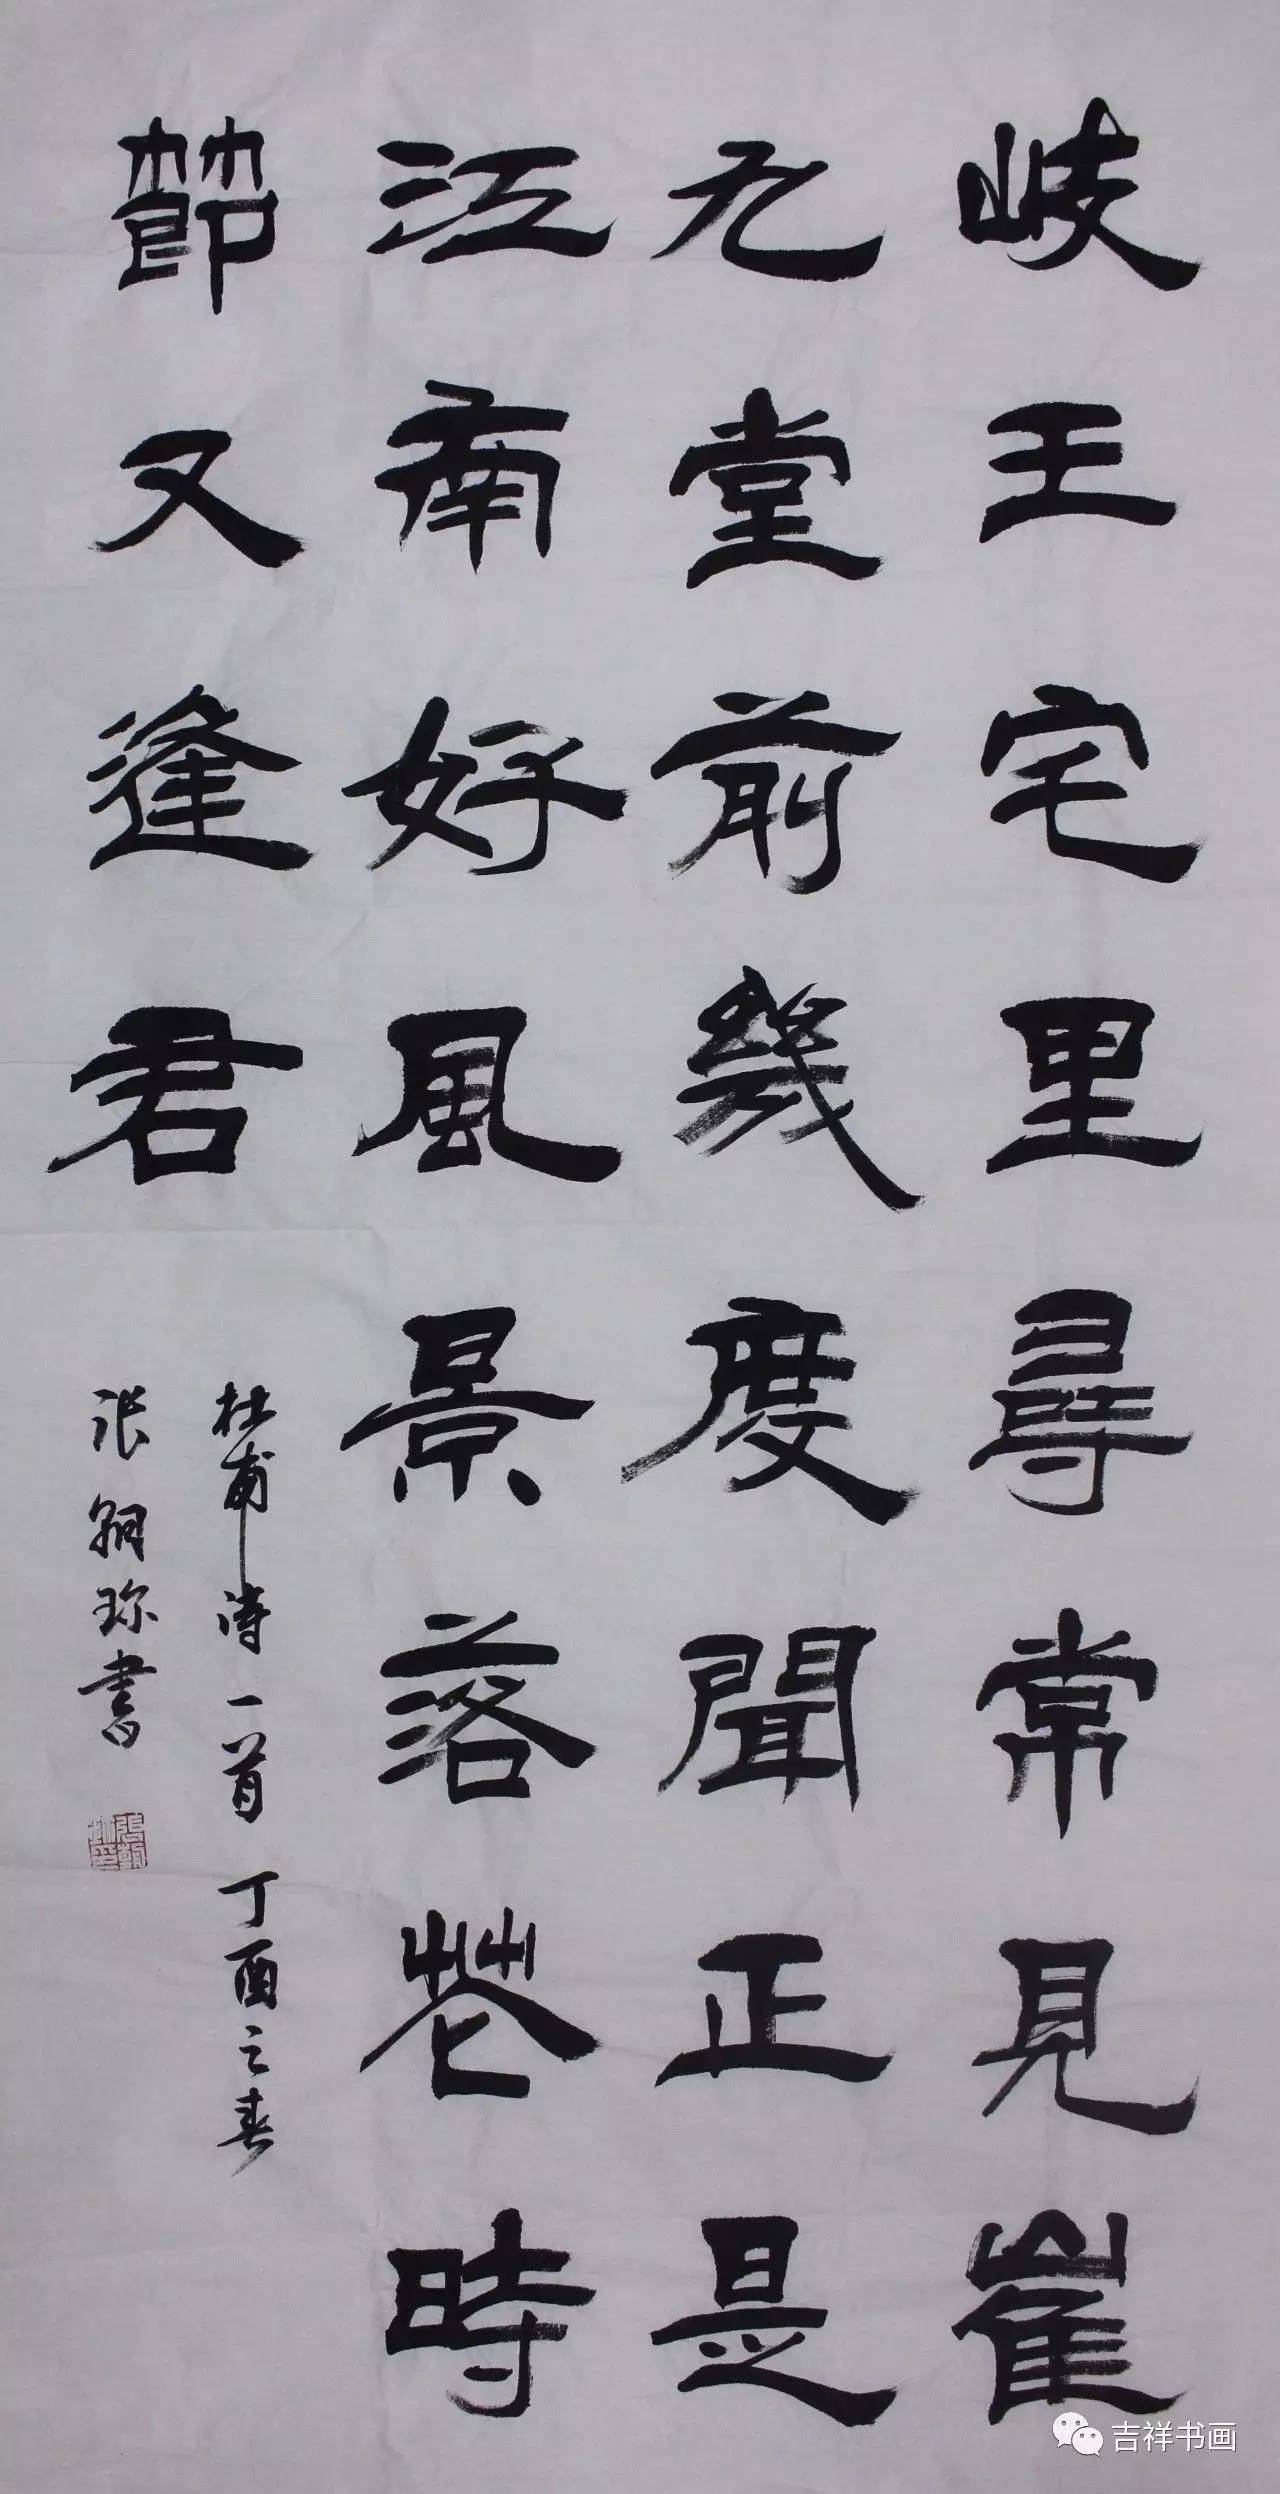 岐王宅里尋常見崔
九堂前幾度聞正是
江南好風景落花時
節又逢君
杜甫诗一首 丁酉之春
张珎書
吉祥书画